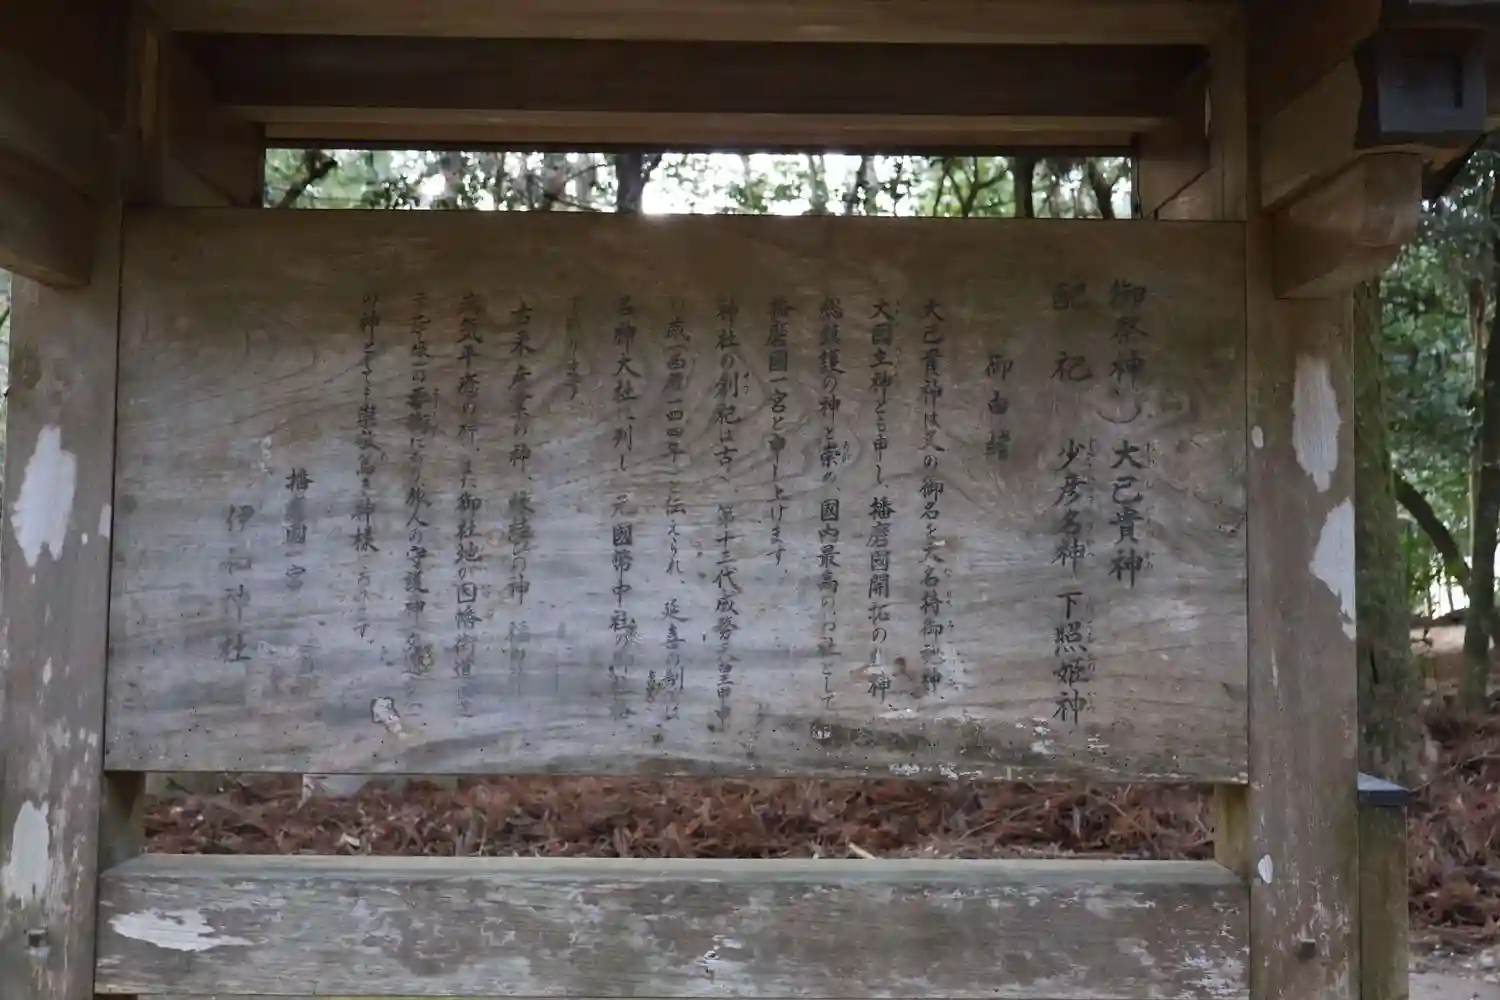 御祭神 大己貴神
配祀 少彦名神 下照姫神
御由緒
大己貴神は又の御名を大名持御神、
大国主神とも申し、播磨國開拓の 神
総鎮護の神と崇め、國内最高の お社として
播磨國一宮と申し上げます。
神社の創祀は古く、第十三代成務天皇甲申
歳（西暦一四四年）と伝えられ、延喜の制では
名神大社に列し、元國幣中社の御社
であります。
古来 の神、縁結びの神、
病気平癒の 、また御社地が因幡街道
の に り旅人の守護神、
の神として崇敬高き神様であります。
播磨國一宮
伊和神社